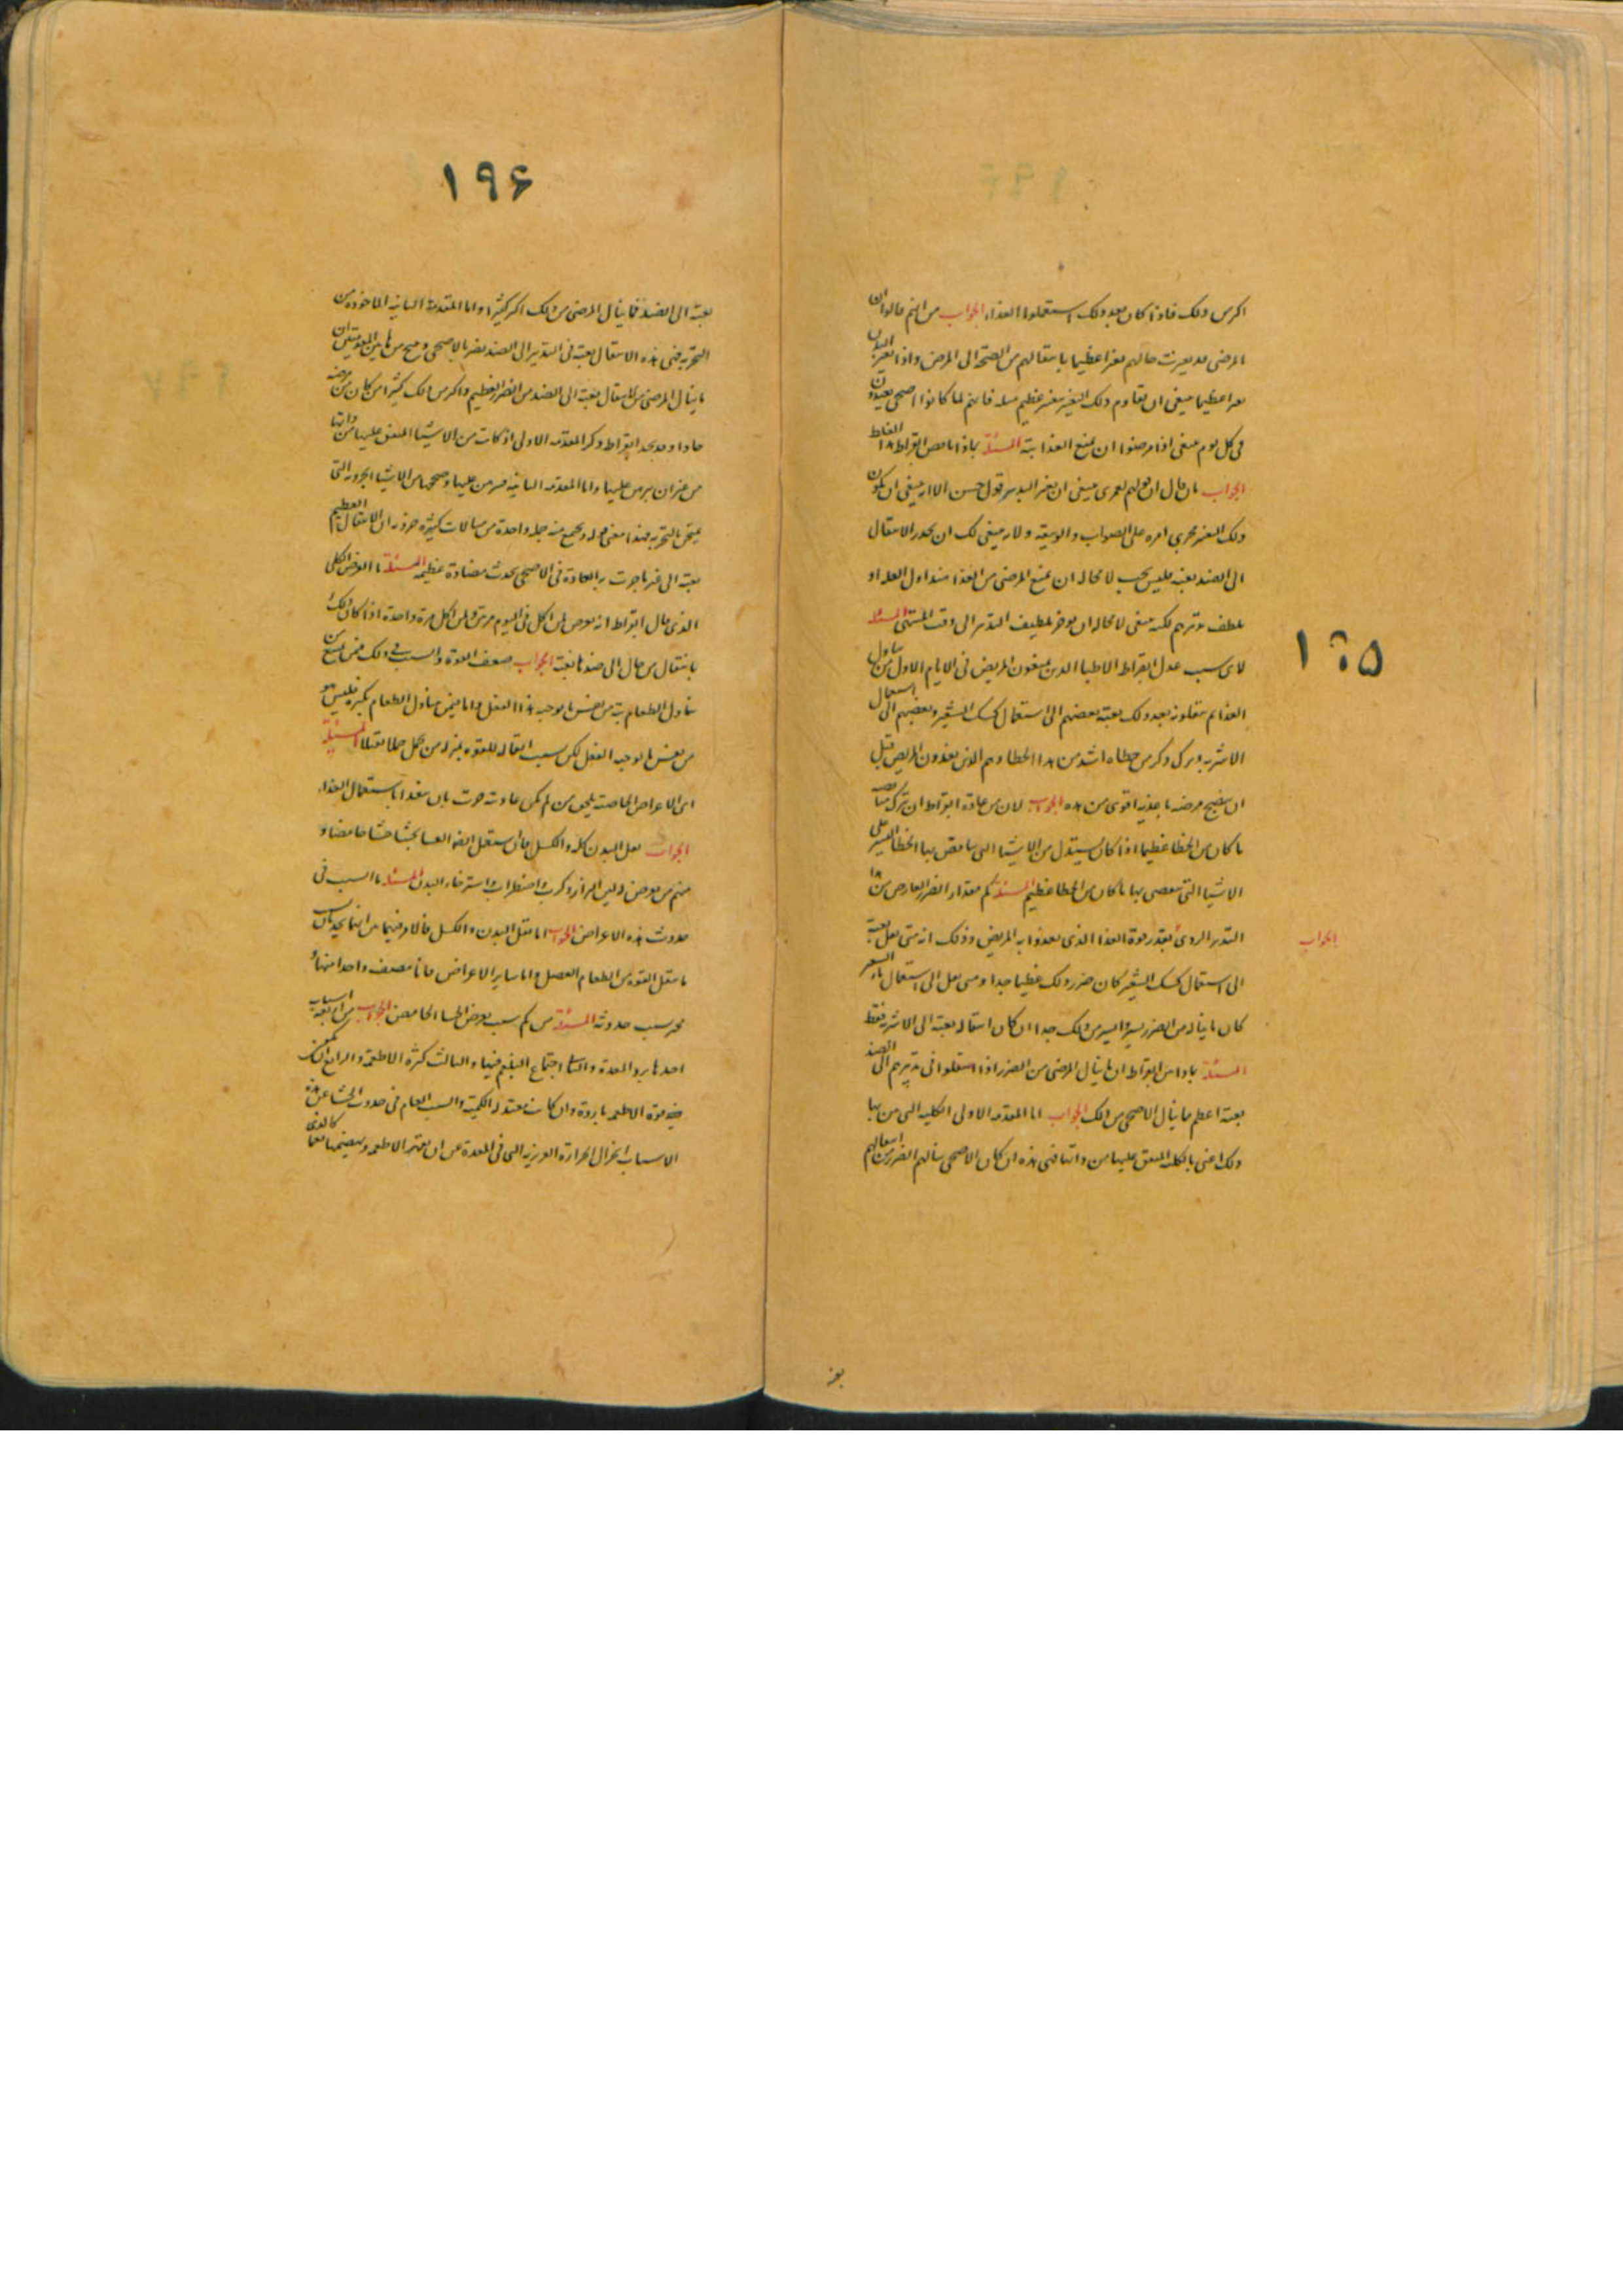 ١٩٥
اكثر من ذلك فاذا كان بعد ذلك استعملوا الغذاء الجواب من انهم قالوا ان
المرضى قد تغيرت حالهم تغيرا عظيما بانتقالهم من الصحة الى المرض واذا تغير البدن
تغيرا عظيما فينبغى ان يقاوم ذلك التغير بتغير عظيم مثله فانهم لما كانوا اصحى يغتذون
فى كل يوم فينبغى اذا مرضوا ان يمنع الغذا بتة المسئلة بماذا ناقض ابقراط هذا الغلط
الجواب بان قال ان قولهم لعمرى ينبغى ان يغير التدبير قول حسن الا انه ينبغى ان يكون
ذلك التغير يجرى امره على الصواب والوثيقة ولانه ينبغى لك ان تحذر الانتقال
الى الضد بغتة فليس يجب لا محالة ان يمنع المرضى من الغذا منذ اول العلة او
يلطف تدبيرهم لكنه ينبغى لا محالة ان يوخر تلطيف التدبير الى وقت المنتهى المسئلة
لاى سبب عذل ابقراط الاطبا الذين يمنعون المريض فى الايام الاول من تناول
الغذا ثم ينقلونه بعد ذلك بغتة بعضهم الى استعمال كشك الشعير وبعضهم الى استعمال
الاشربة وترك ذكر من خطاه اشد من هذا الخطا وهم الذين يغذون المريض قبل
ان ينضج مرضه باغذية اقوى من هذه الجواب لان من عادة ابقراط ان يترك مناقضة
ما كان من الخطا عظيما اذا كان يستدل من الاشيا التى يناقض بها الخطا اليسير على
الاشيا التى ينقض بها ما كان من الخطا عظيم المسئلة كم مقدار الضرر العارض من هذا
الجواب
التدبير الردى بقدر قوة الغذا الذى يغذوا به المريض وذلك انه متى نقل بغتة
الى استعمال كشك الشعير كان ضرر ذلك عظيما جدا ومتى نقل الى استعمال ماء الشعير
كان ما يناله من الضرر يسيرا وايسر من ذلك جدا ان كان انتقاله بغتة الى الاشربة فقط
المسئلة بماذا بين ابقراط ان ما ينال المرضى من الضرر اذا انتقلوا فى تدبيرهم الى الضد
بغتة اعظم مما ينال الاصحى من ذلك الجواب اما المقدمة الاولى الكلية التى بين بها
ذلك اعنى بالكلية المتفق عليها من ذاتها فهى هذه ان كان الاصحى ينالهم الضرر من انتقالهم
بغتة
١٩۶
بغتة الى الضد فما ينال المرضى من ذلك اكثر كثيرا واما المقدمة الثانية الماخوذة من
التجربة فهى هذه الانتقال بغتة فى التدبير الى الضد يضر بالاصحى وينتج من هاتين المقدمتين ان
ما ينال المرضى من الانتقال بغتة الى الضد من الضرر العظيم واكثر من ذلك كثيرا من كان مرضه
حادا وقد نجد ابقراط ذكر المقدمة الاولى اذ كانت من الاشيا المتفق عليها من ذاتها
من غير ان يبرهن عليها واما المقدمة الثانية فبرهن عليها وصححها من الاشيا الجزوية التى
يمتحن بالتجربة فهذا معنى قوله ويجمع منه جملة واحدة من مثالات كثيرة جزوية ان الانتقال العظيم
بغتة الى غير ما جرت به العادة فى الاصحى يحدث مضادة عظيمة المسئلة ما العرض الكلى
الذى قال ابقراط انه يعرض لمن اكل فى اليوم مرتين ولمن اكل مرة واحدة اذا كان ذلك
بانتقال من حال الى ضدها بغتة الجواب ضعف القوة والسبب فى ذلك فيمن يمنع من
تناول الطعام بتة من نفس ما يوجبه هذا الفعل واما فيمن يتناول الطعام بكثرة فليس هو
من نفس ما يوجبه الفعل لكن بسبب اثقاله للقوة بمنزلة من حمل حملا ثقيلا المسئلة
اى الاعراض الخاصة يلحق من لم تكن عادته جرت بان يتغدا باستعمال الغذاء
الجواب ثقل البدن كله والكسل فان استعمل ايضا العشا تجشا جشا حامضا و
منهم من يعرض له لين البراز وكرب واضطراب واسترخاء البدن المسئلة ما السبب فى
حدوث هذه الاعراض الجواب اما ثقل البدن والكسل فالامر فيهما بين انهما يحدثان بسبب
ما يثقل القوة من الطعام الفضل واما ساير الاعراض فانا نصف واحدا منها و
نخبر بسبب حدوثه المسئلة من كم سبب يعرض الجشا الحامض الجواب من اربعة اسباب
احدها برد المعدة والثانى اجتماع البلغم فيها والثالث كثرة الاطعمة والرابع
قوة الاطعمة باردة وان كانت معتدلة الكمية والسبب العام فى حدوث الجشا عن هذه
الاسباب انخزال الحرارة الغريزية التى فى المعدة عن ان تقهر الاطعمة وتهضمها كالذى